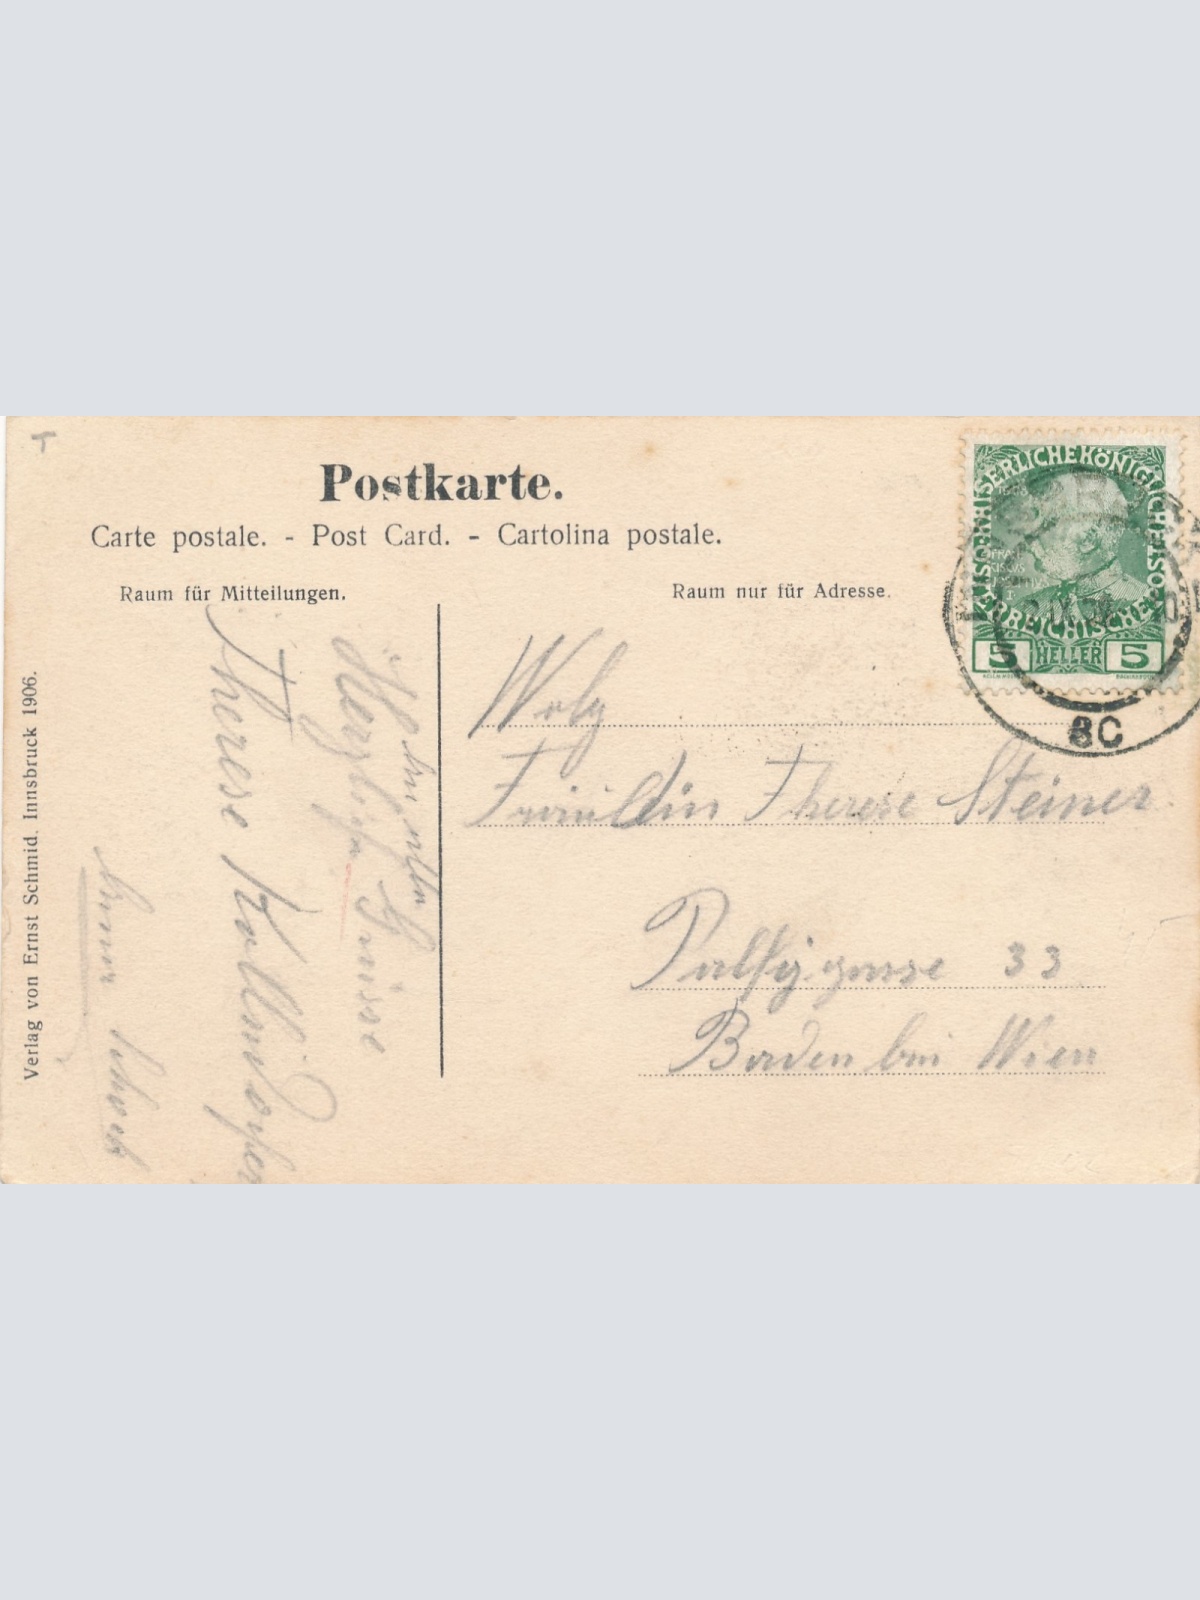 Postkarte.
Carte postale. - Post Card. - Cartolina postale.
Raum für Mitteilungen.
Raum nur für Adresse.
KAISERLICHE KÖNIGLICHE
ÖSTERREICHISCHE POST
5 HELLER 5
8C
Wolg
Fräulein Therese Steiner
Palfigasse 33
Baden bei Wien
Herzliche Grüsse
Therese
Verlag von Ernst Schmid. Innsbruck 1906.